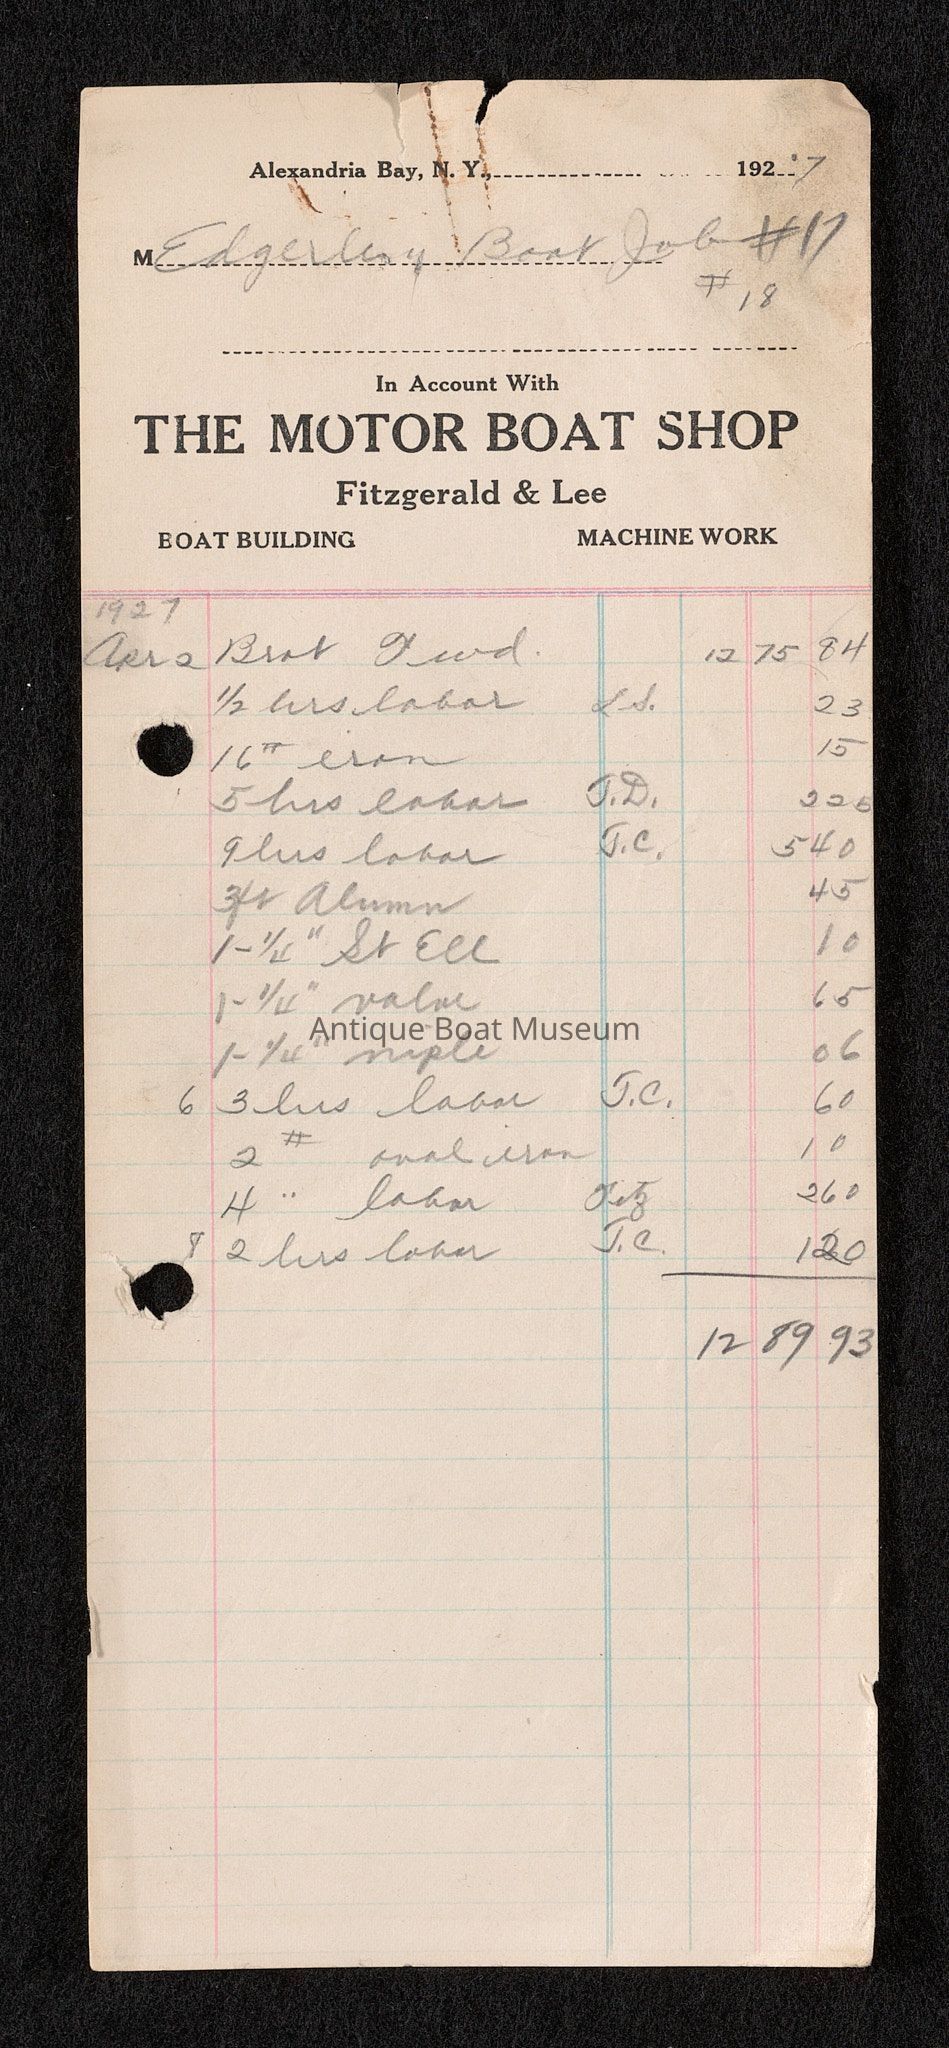 Alexandria Bay, N. Y., 192 7
M Edgerley Boat Job #17
# 18
In Account With
THE MOTOR BOAT SHOP
Fitzgerald & Lee
BOAT BUILDING MACHINE WORK
1927
Apr 2 Brot Fwd. 12 75 84
1/2 hrs labor L.S. 23
16# iron 15
5 hrs labor J.D. 2 25
9 hrs labor J.C. 5 40
3ft Alumn 45
1-1/4" St Ell 10
1-1/4" valve 65
Antique Boat Museum
1-1/4" niple 06
6 3 hrs labor J.C. 60
2 # oval iron 10
4 " labor Fitz 2 60
8 2 hrs labor J.C. 1 20
12 89 93